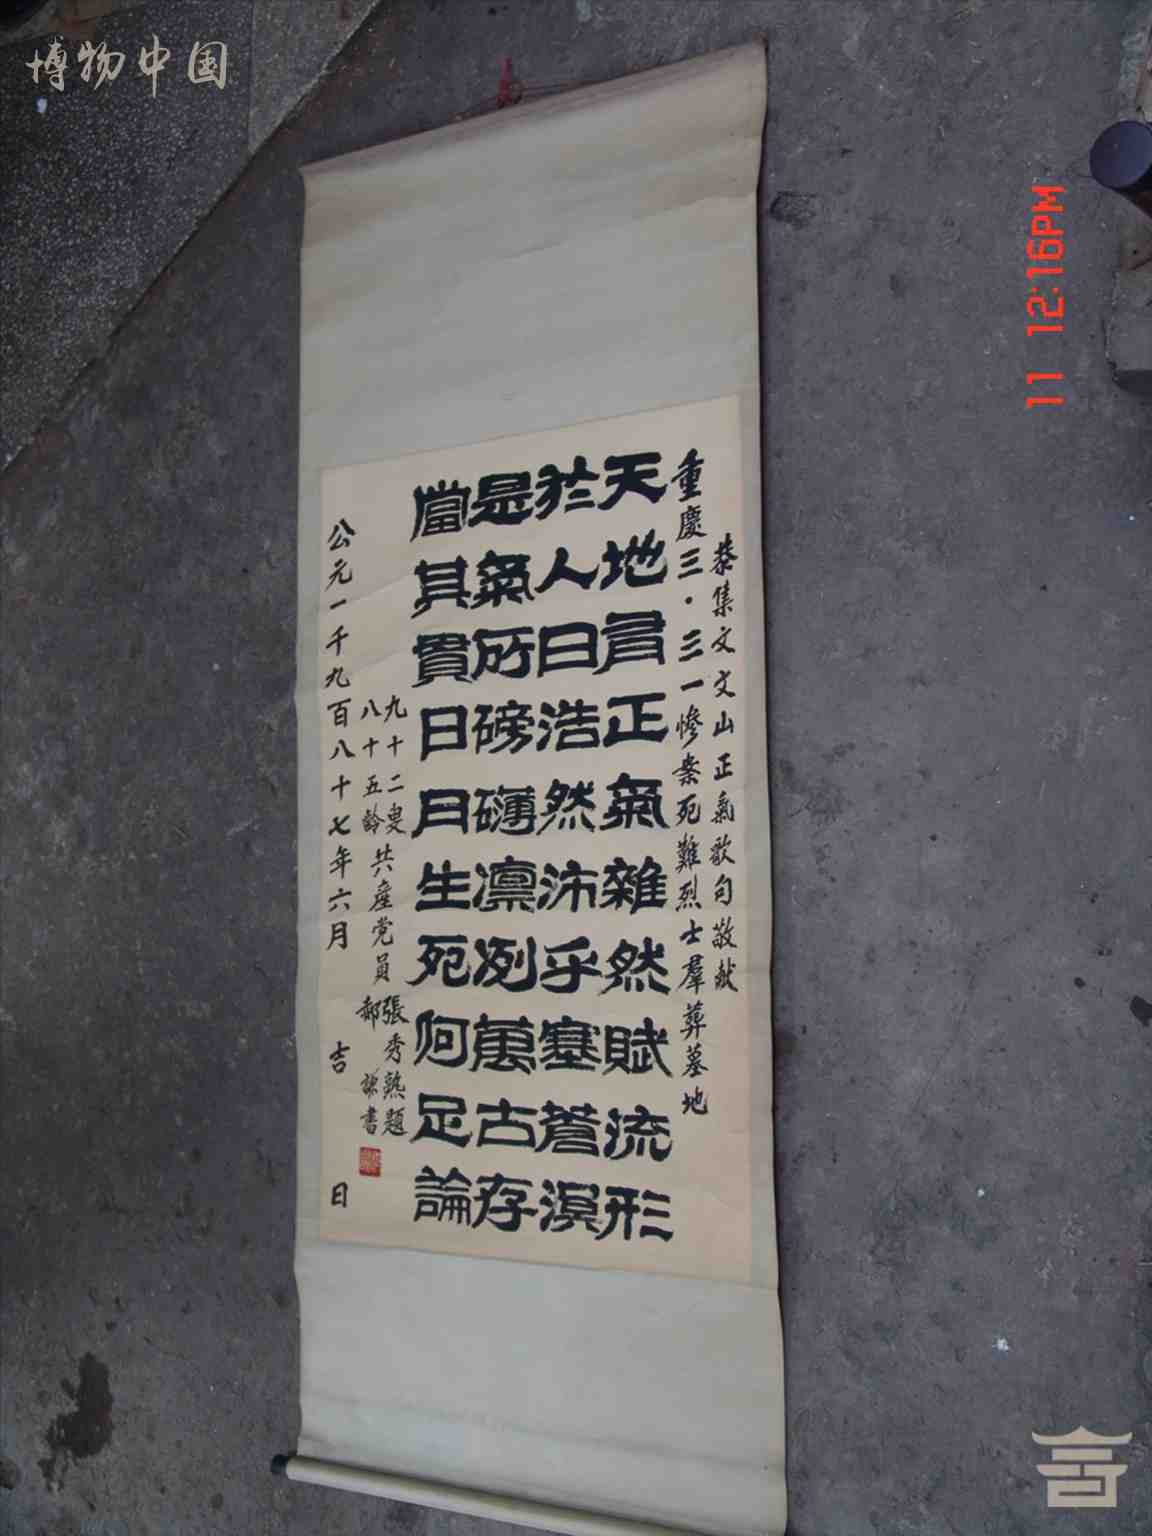 博物中国
11 12:16PM
恭集文文山正氣歌句敬献
重慶三·三一慘案死難烈士羣葬墓地
天地有正氣雜然賦流形
於人曰浩然沛乎塞蒼溟
是氣所磅礴凛冽萬古存
當其貫日月生死何足論
九十二叟
八十五齡
共產党員
張秀熟題
郝謙書
公元一千九百八十七年六月吉日